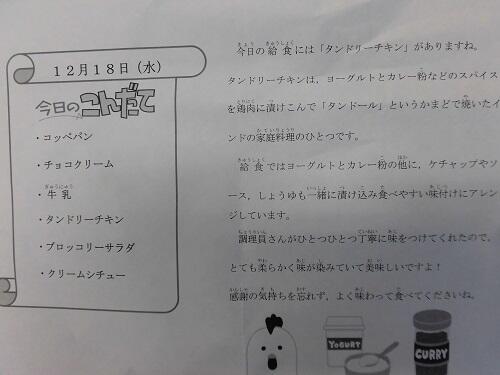 12月18日（水）
今日のこんだて
・コッペパン
・チョコクリーム
・牛乳
・タンドリーチキン
・ブロッコリーサラダ
・クリームシチュー
今日の給食には「タンドリーチキン」がありますね。
タンドリーチキンは，ヨーグルトとカレー粉などのスパイス
を鶏肉に漬けこんで「タンドール」というかまどで焼いたイ
ンドの家庭料理のひとつです。
給食ではヨーグルトとカレー粉の他に，ケチャップやソ
ース，しょうゆも一緒に漬け込み食べやすい味付けにアレン
ジしています。
調理員さんがひとつひとつ丁寧に味をつけてくれたので，
とても柔らかく味が染みていて美味しいですよ！
感謝の気持ちを忘れず，よく味わって食べてくださいね。
YOGURT
CURRY